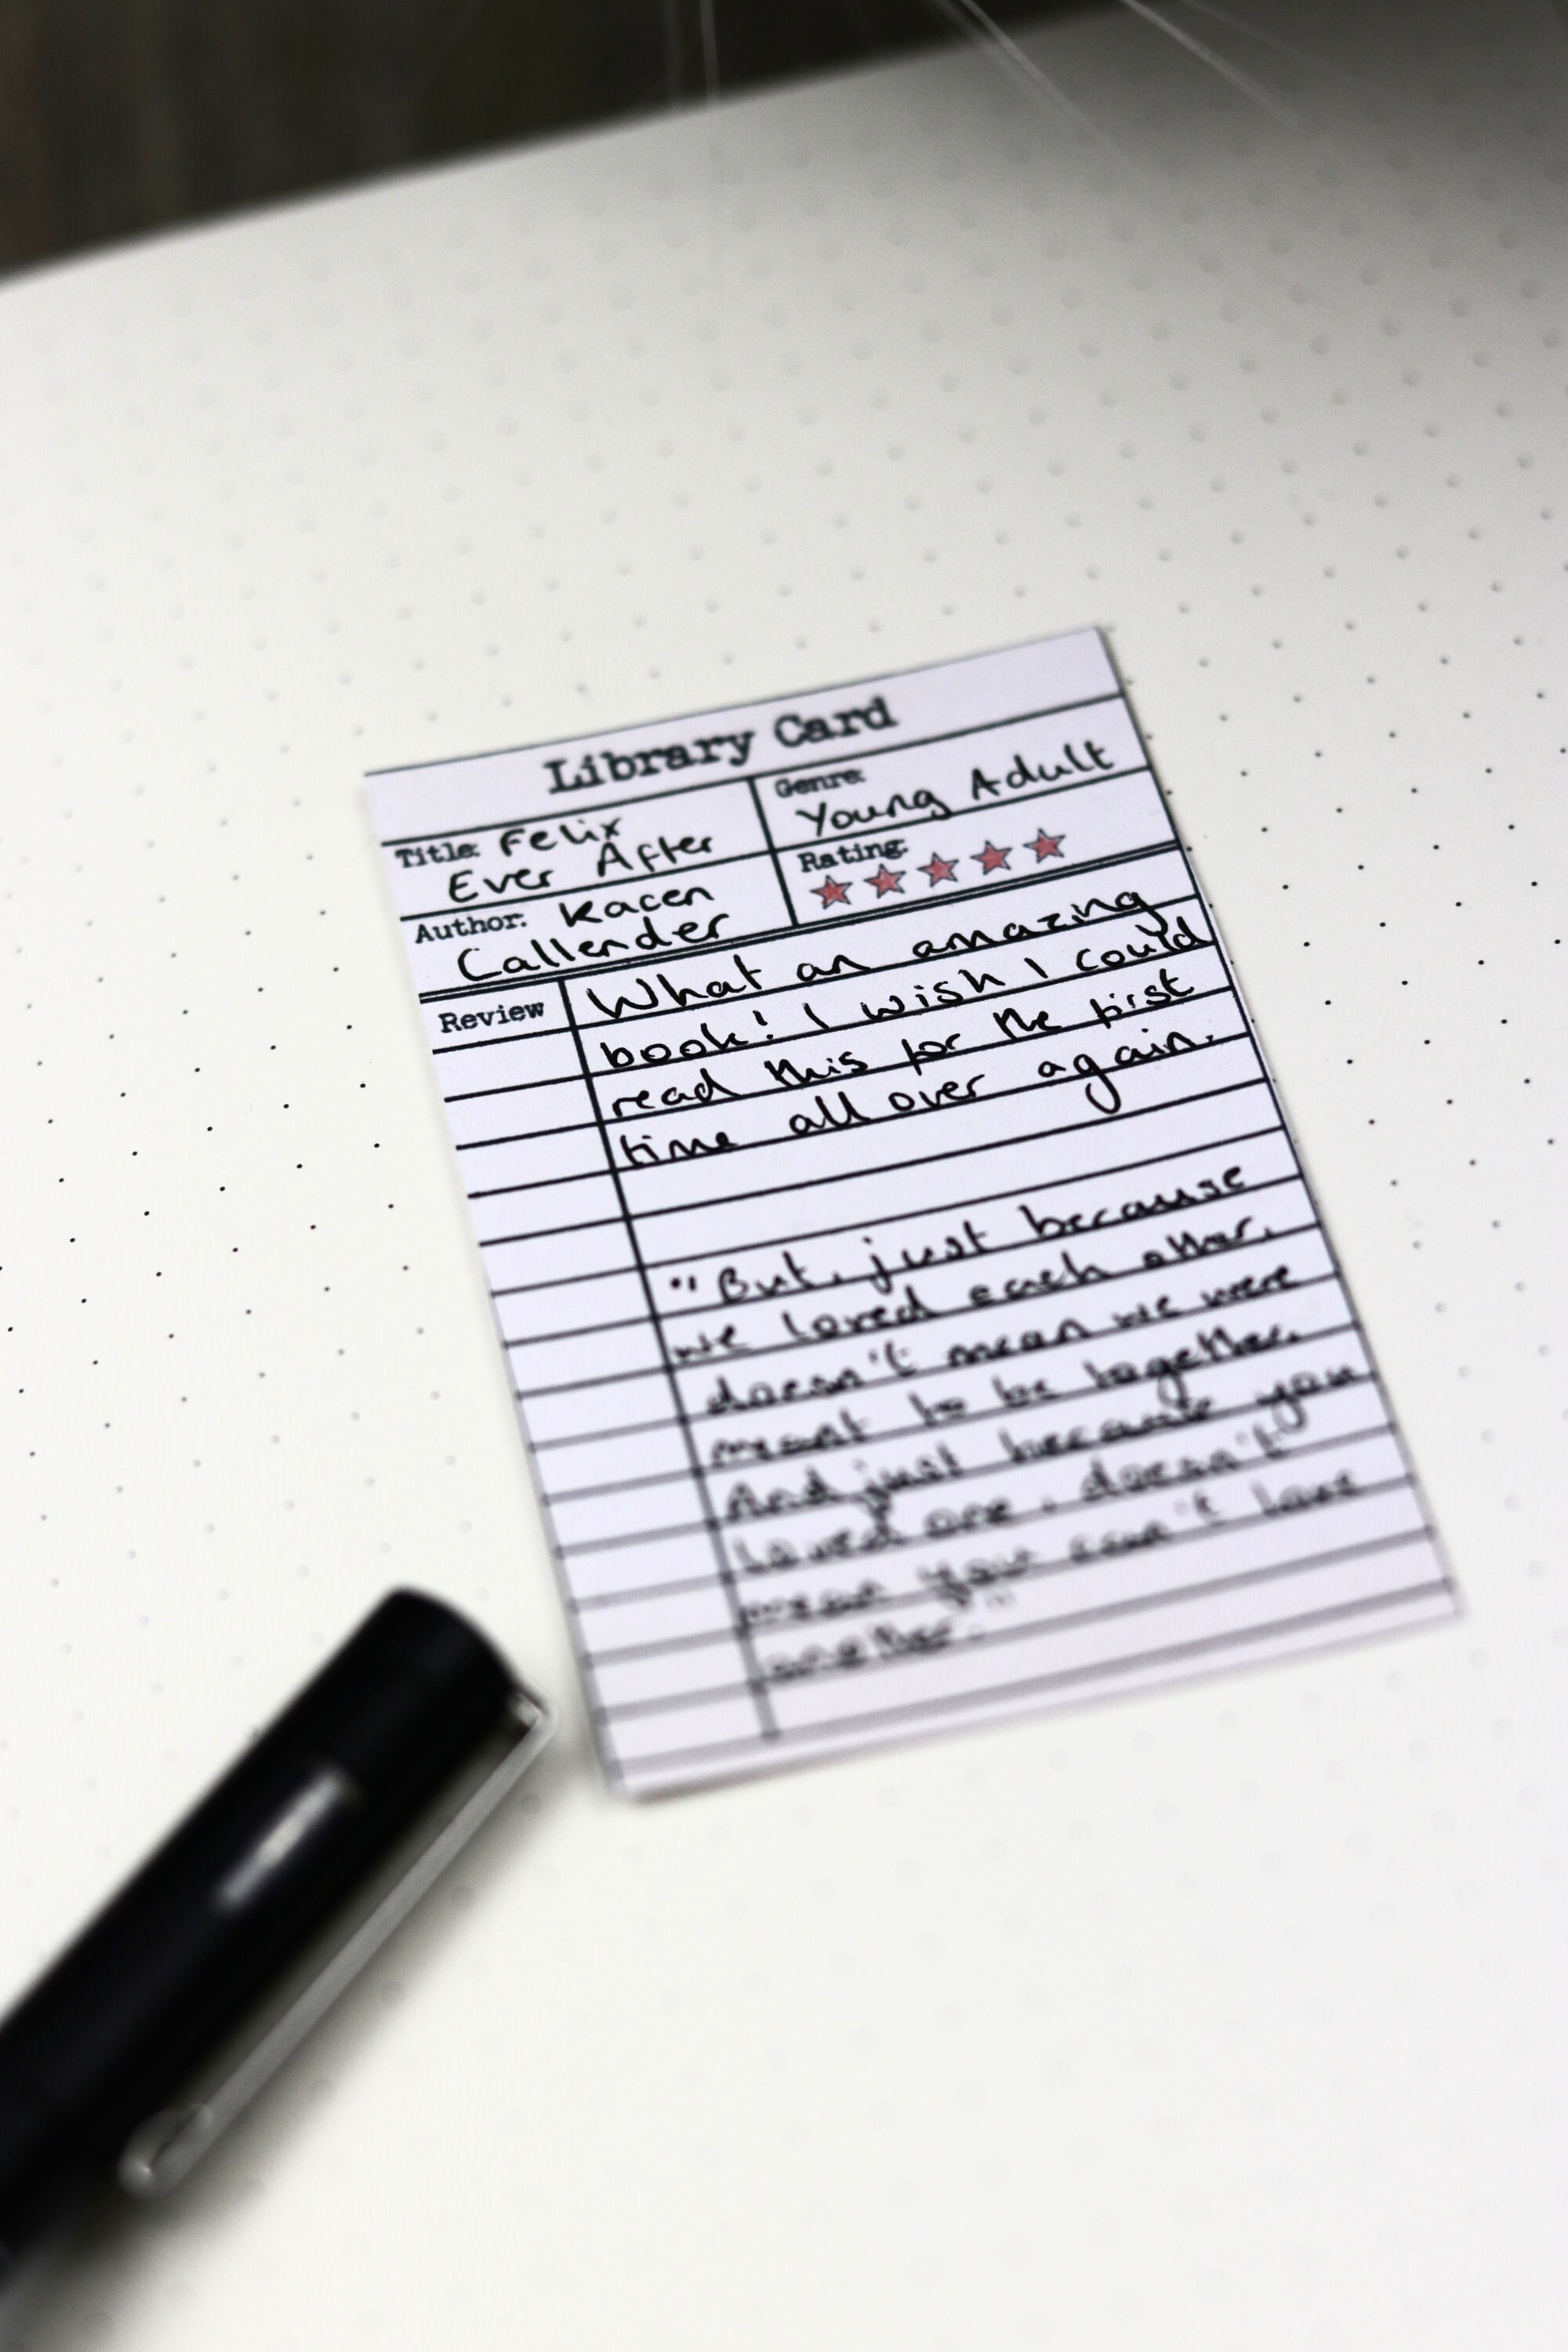 Library Card
Title: Felix
Ever After
Genre:
Young Adult
Author: Kacen
Callender
Rating:
Review
What an amazing
book! I wish I could
read this for the first
time all over again.
"But, just because
we loved each other,
doesn't mean we were
meant to be together.
And just because you
loved one, doesn't
mean you can't love
another."